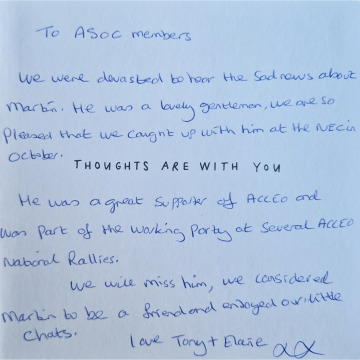 To ASOC members
We were devasted to hear the sad news about
Martin. He was a lovely gentleman, we are so
pleased that we caught up with him at the NEC in
October.
THOUGHTS ARE WITH YOU
He was a great supporter of ACCEO and
was part of the working party at several ACCEO
National Rallies.
We will miss him, we considered
Martin to be a friend and enjoyed our little
chats.
love Tony + Elaine xx